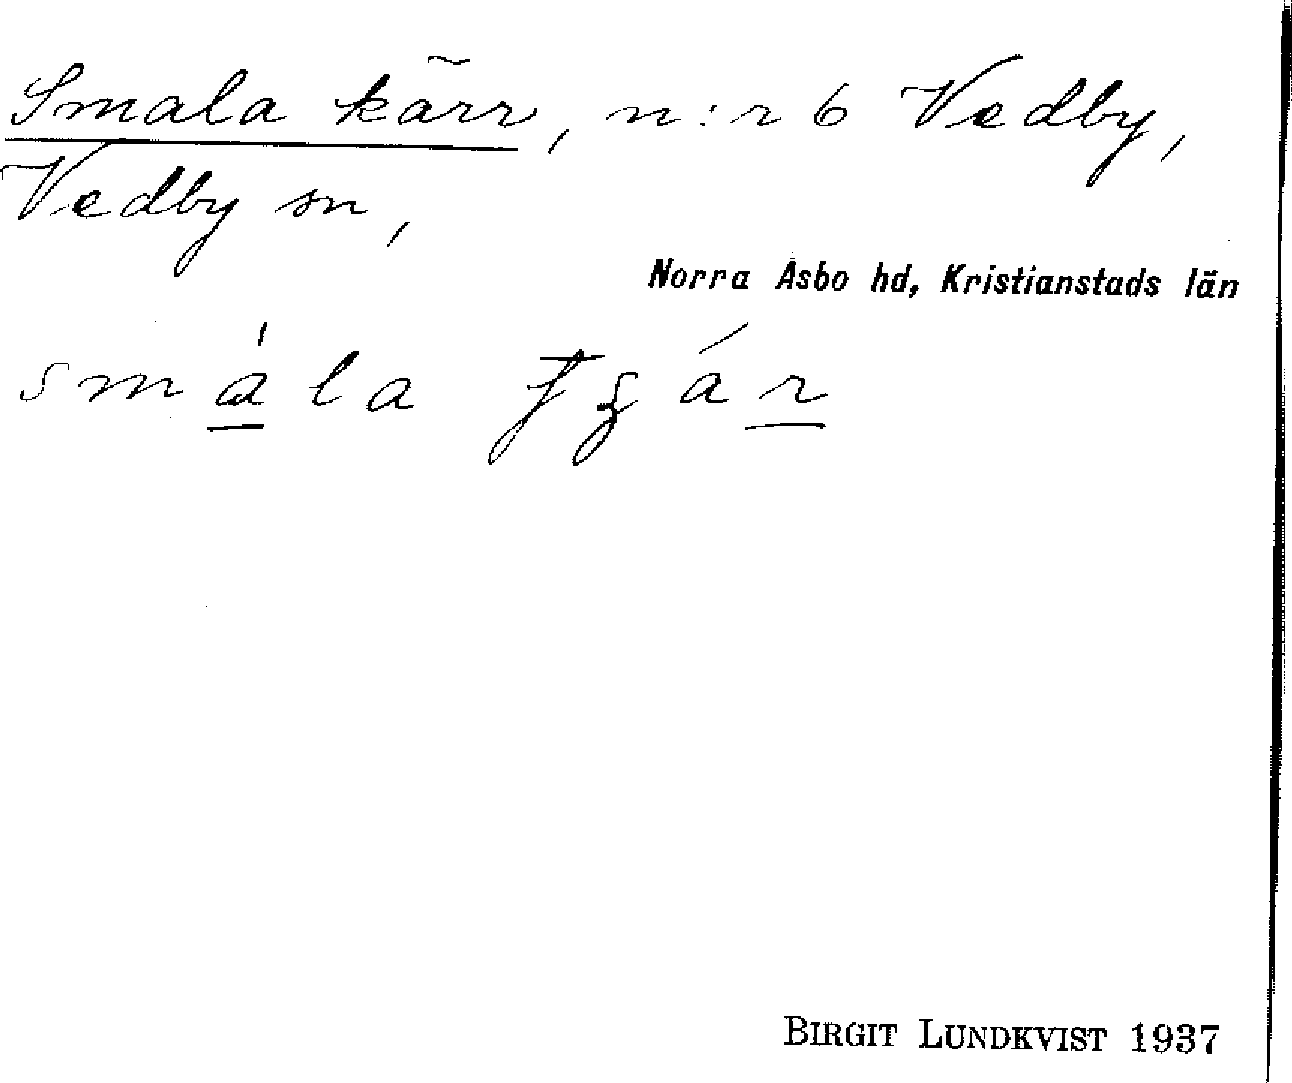 Smala kärr, n:r 6 Vedby,
Vedby sn,
Norra Åsbo hd, Kristianstads län
BIRGIT LUNDKVIST 1937